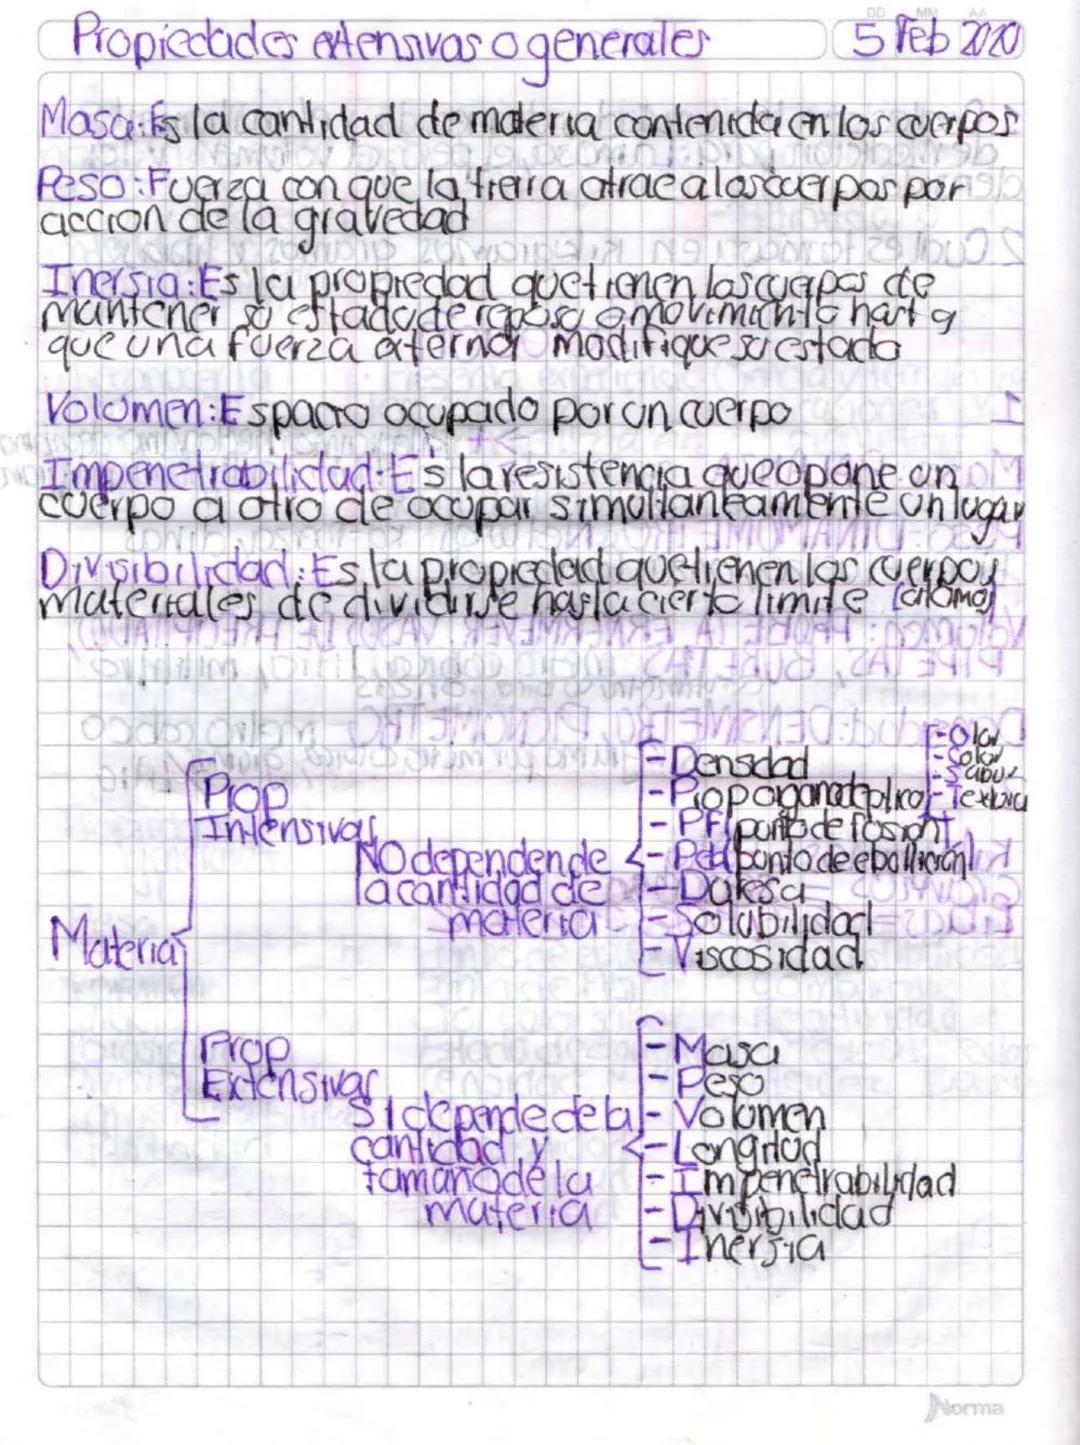 DD MM AA
Propiedades extensivas o generales 5 Feb 2020
Masa: Es la cantidad de materia contenida en los cuerpos
Peso: Fuerza con que la tierra atrae a los cuerpos por
accion de la gravedad
Inersia: Es la propiedad que tienen los cuerpos de
mantener su estado de reposo o movimiento hasta
que una fuerza externa modifique su estado
Volumen: Espacio ocupado por un cuerpo
Impenetrabilidad: Es la resistencia que opone un
cuerpo a otro de ocupar simultaneamente un lugar
Divisibilidad: Es la propiedad que tienen los cuerpos y
materiales de dividirse hasta cierto limite (atomo)
Materia
Prop
Intensivas
NO dependen de
la cantidad de
materia
- Densidad
- Propoganoleptica
- Olor
- Color
- Sabor
- Textura
- PF (punto de fusion)
- Peb (punto de ebollicion)
- Duresa
- Solubilidad
- Viscosidad
Prop
Extensivas
Si depende de la
cantidad y
tamaño de la
materia
- Masa
- Peso
- Volumen
- Longitud
- Impenetrabilidad
- Divisibilidad
- Inersia
Norma